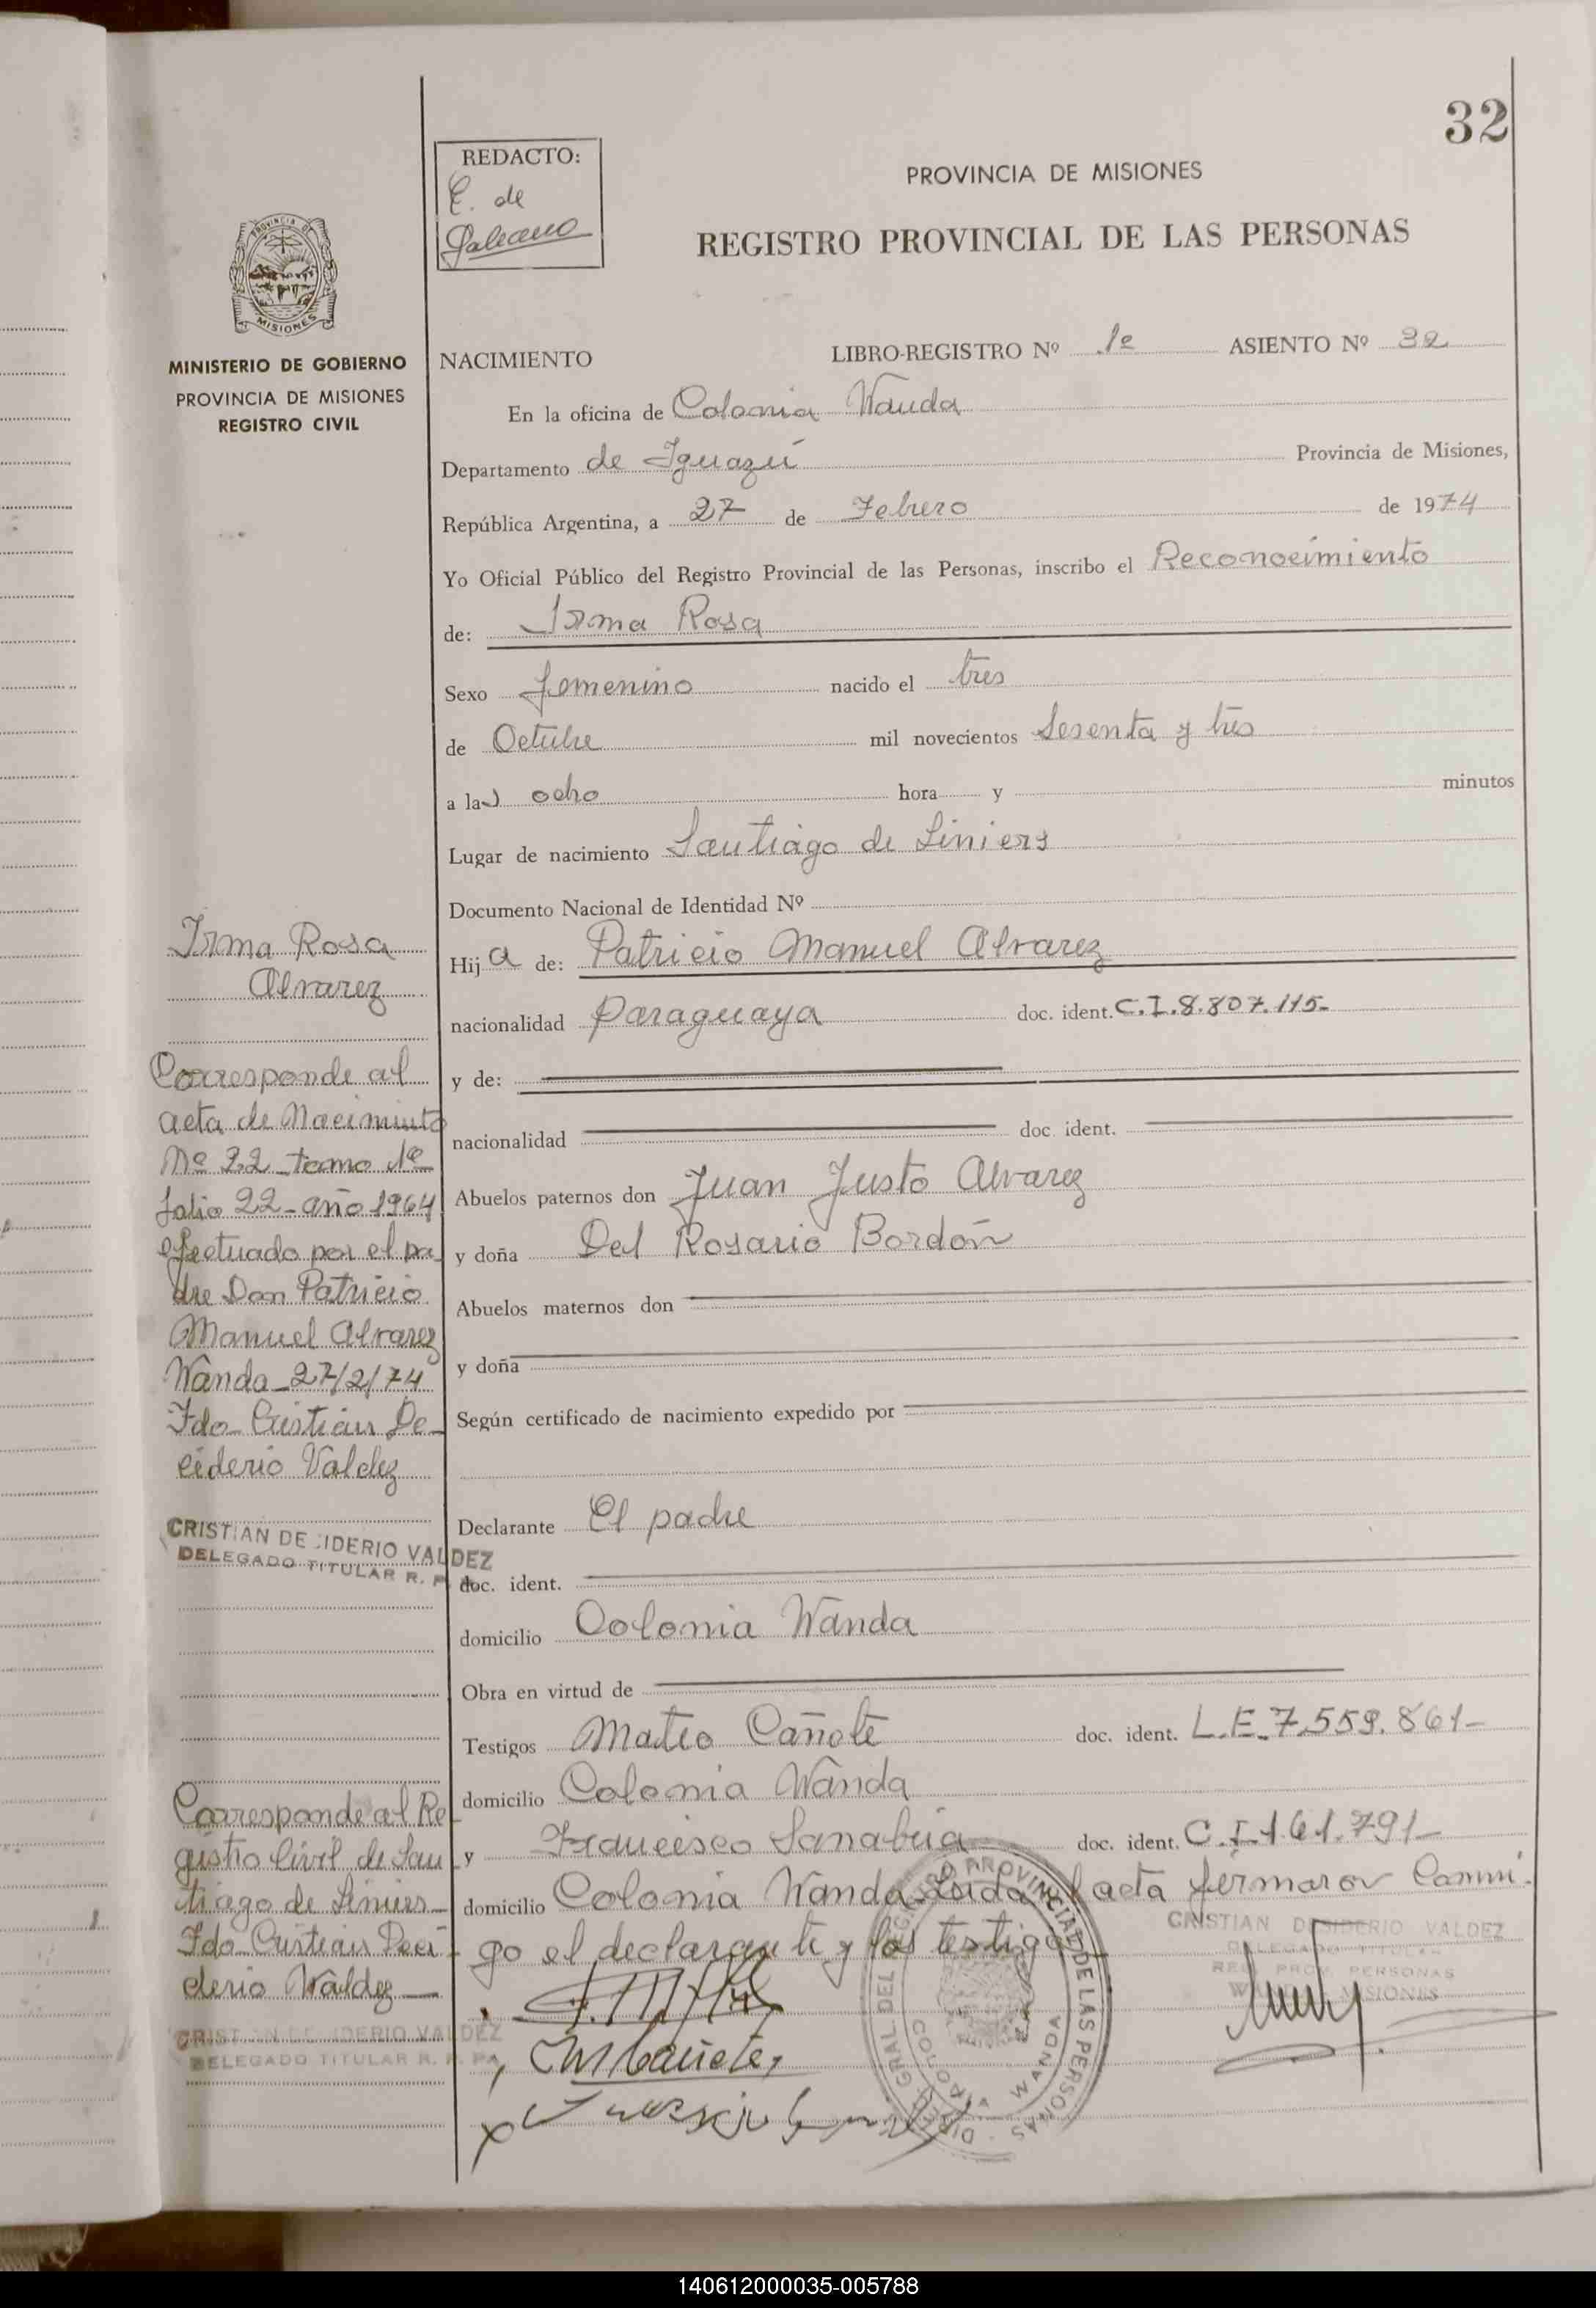 32
REDACTO:
E. de
Galeano
PROVINCIA DE MISIONES
REGISTRO PROVINCIAL DE LAS PERSONAS
PROVINCIA DE
MISIONES
MINISTERIO DE GOBIERNO
PROVINCIA DE MISIONES
REGISTRO CIVIL
NACIMIENTO LIBRO-REGISTRO Nº 1º ASIENTO Nº 32
En la oficina de Colonia Wanda
Departamento de Iguazú Provincia de Misiones,
República Argentina, a 27 de Febrero de 1974
Yo Oficial Público del Registro Provincial de las Personas, inscribo el Reconocimiento
de: Irma Rosa
Sexo femenino nacido el tres
de Octubre mil novecientos Sesenta y tres
a las ocho hora y minutos
Lugar de nacimiento Santiago de Liniers
Documento Nacional de Identidad Nº
Hija de: Patricio Manuel Alvarez
nacionalidad paraguaya doc. ident. C.I.8.807.115-
y de:
nacionalidad doc. ident.
Abuelos paternos don Juan Justo Alvarez
y doña Del Rosario Bordón
Abuelos maternos don
y doña
Según certificado de nacimiento expedido por
Declarante El padre
doc. ident.
domicilio Colonia Wanda
Obra en virtud de
Testigos Mateo Cañete doc. ident. L.E.7.559.861-
domicilio Colonia Wanda
y Francisco Sanabria doc. ident. C.I.161.791-
domicilio Colonia Wanda Leida el acta firmaron Conmi-
go el declarante y los testigos
Irma Rosa
Alvarez
Corresponde al
acta de Nacimiento
Nº 22 tomo 1º
folio 22- año 1964
efectuado por el pa-
dre Don Patricio
Manuel Alvarez
Wanda-27/2/74
Fdo Cristian De-
ciderio Valdez
CRISTIAN DE IDERIO VALDEZ
DELEGADO TITULAR R. P.
Corresponde al Re
gistro Civil de San
tiago de Liniers-
Fdo Cristian Deci-
derio Valdez
CRISTIAN DE IDERIO VALDEZ
DELEGADO TITULAR R. P. PA
CRISTIAN DESIDERIO VALDEZ
DELEGADO TITULAR
REG. PROV. PERSONAS
WANDA MISIONES
DIREC. GRAL DEL REGISTRO PROVINCIAL DE LAS PERSONAS
WANDA
M Cañete
140612000035-005788